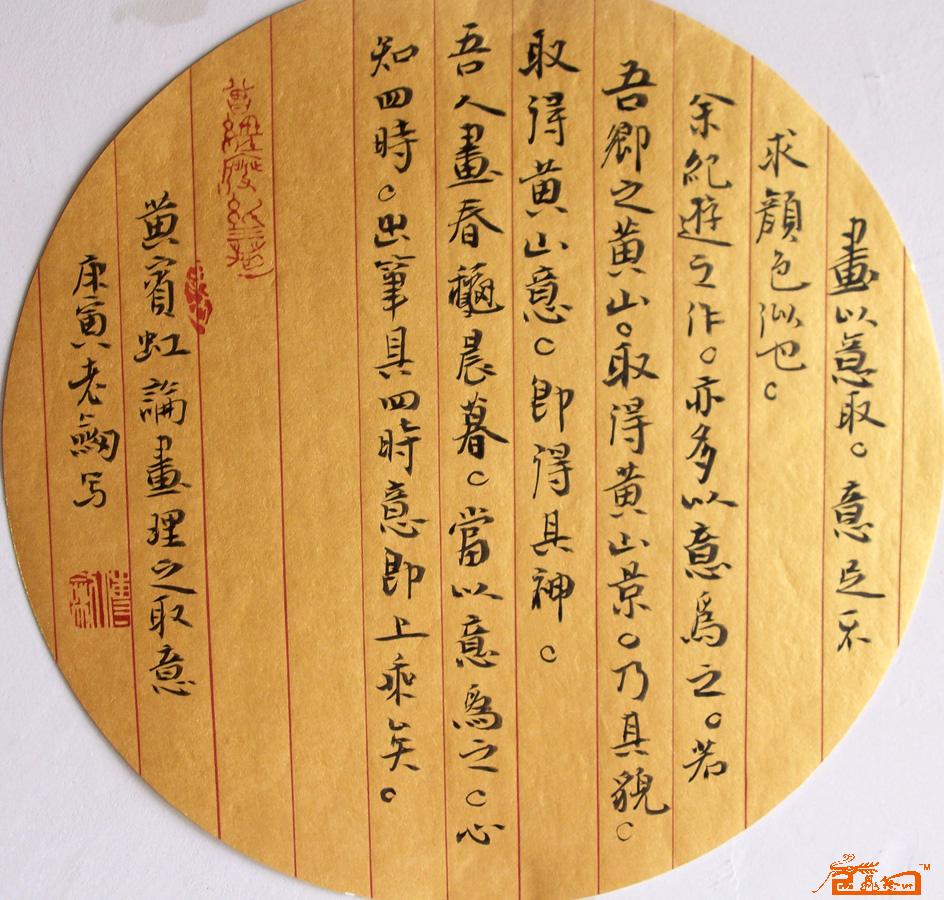 畫以意取。意足不
求顏色似也。
余紀遊之作。亦多以意爲之。若
吾鄉之黃山。取得黃山景。乃具貌。
取得黃山意。即得其神。
吾人畫春龝晨暮。當以意爲之。心
知四時。出筆具四時意即上乘矣。
黃賓虹論畫理之取意
庚寅老劬写